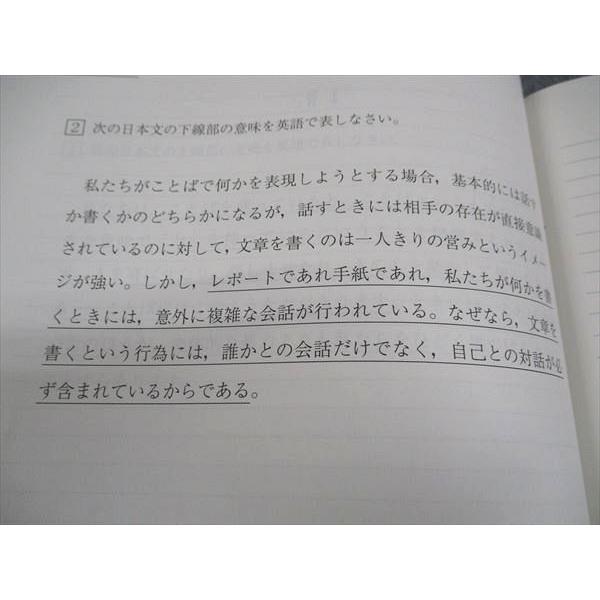 2 次の日本文の下線部の意味を英語で表しなさい。
私たちがことばで何かを表現しようとする場合，基本的には話す
か書くかのどちらかになるが，話すときには相手の存在が直接意識
されているのに対して，文章を書くのは一人きりの営みというイメー
ジが強い。しかし，レポートであれ手紙であれ，私たちが何かを書
くときには，意外に複雑な会話が行われている。なぜなら，文章を
書くという行為には，誰かとの会話だけでなく，自己との対話が必
ず含まれているからである。